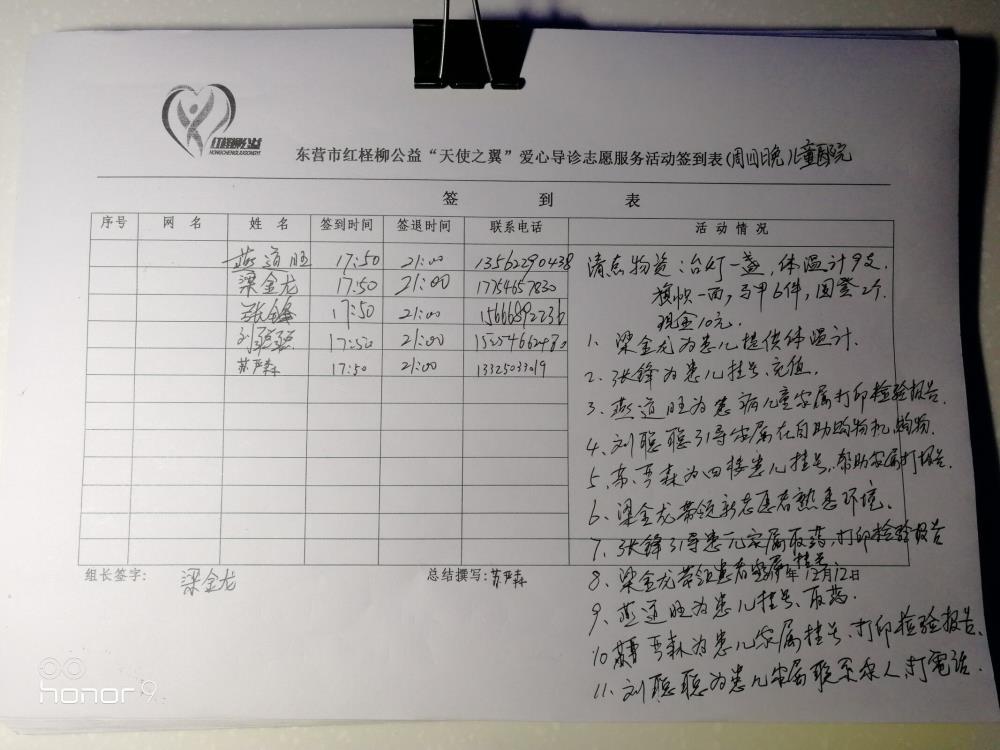 红柽柳公益
HONGCHENGLIUGONGYI
东营市红柽柳公益“天使之翼”爱心导诊志愿服务活动签到表(周四晚)儿童医院
签 到 表
序号 网 名 姓 名 签到时间 签退时间 联系电话 活 动 情 况
燕道旺 17:50 21:00 13562290438
梁金龙 17:50 21:00 17754657830
张锋 17:50 21:00 15666892236
刘聪聪 17:50 21:00
苏严森 17:50 21:00 13325033019
清点物资:台灯一盏,体温计9支.
旗帜一面,马甲6件,圆凳2个.
现金10元.
1、梁金龙为患儿提供体温计.
2、张锋为患儿挂号、充值.
3、燕道旺为患病儿童家属打印检验报告.
4、刘聪聪引导家属在自助购物机购物.
5、苏严森为四楼患儿挂号,帮助家属打报告.
6、梁金龙带领新志愿者熟悉环境.
7、张锋引导患儿家属取药,打印检验报告
8、梁金龙带领患者家属挂号
年12月12日
9、燕道旺为患儿挂号、取药.
10 苏严森为患儿家属挂号、打印检验报告、
11、刘聪聪为患儿家属联系家人,打電话.
组长签字: 梁金龙 总结撰写:苏严森
honor 9